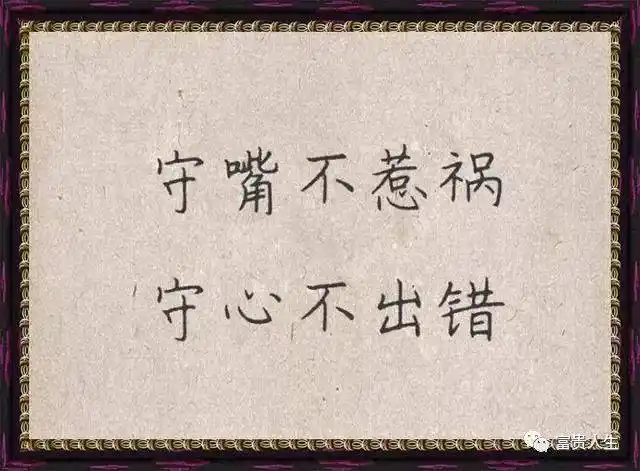 守嘴不惹祸
守心不出错
富贵人生